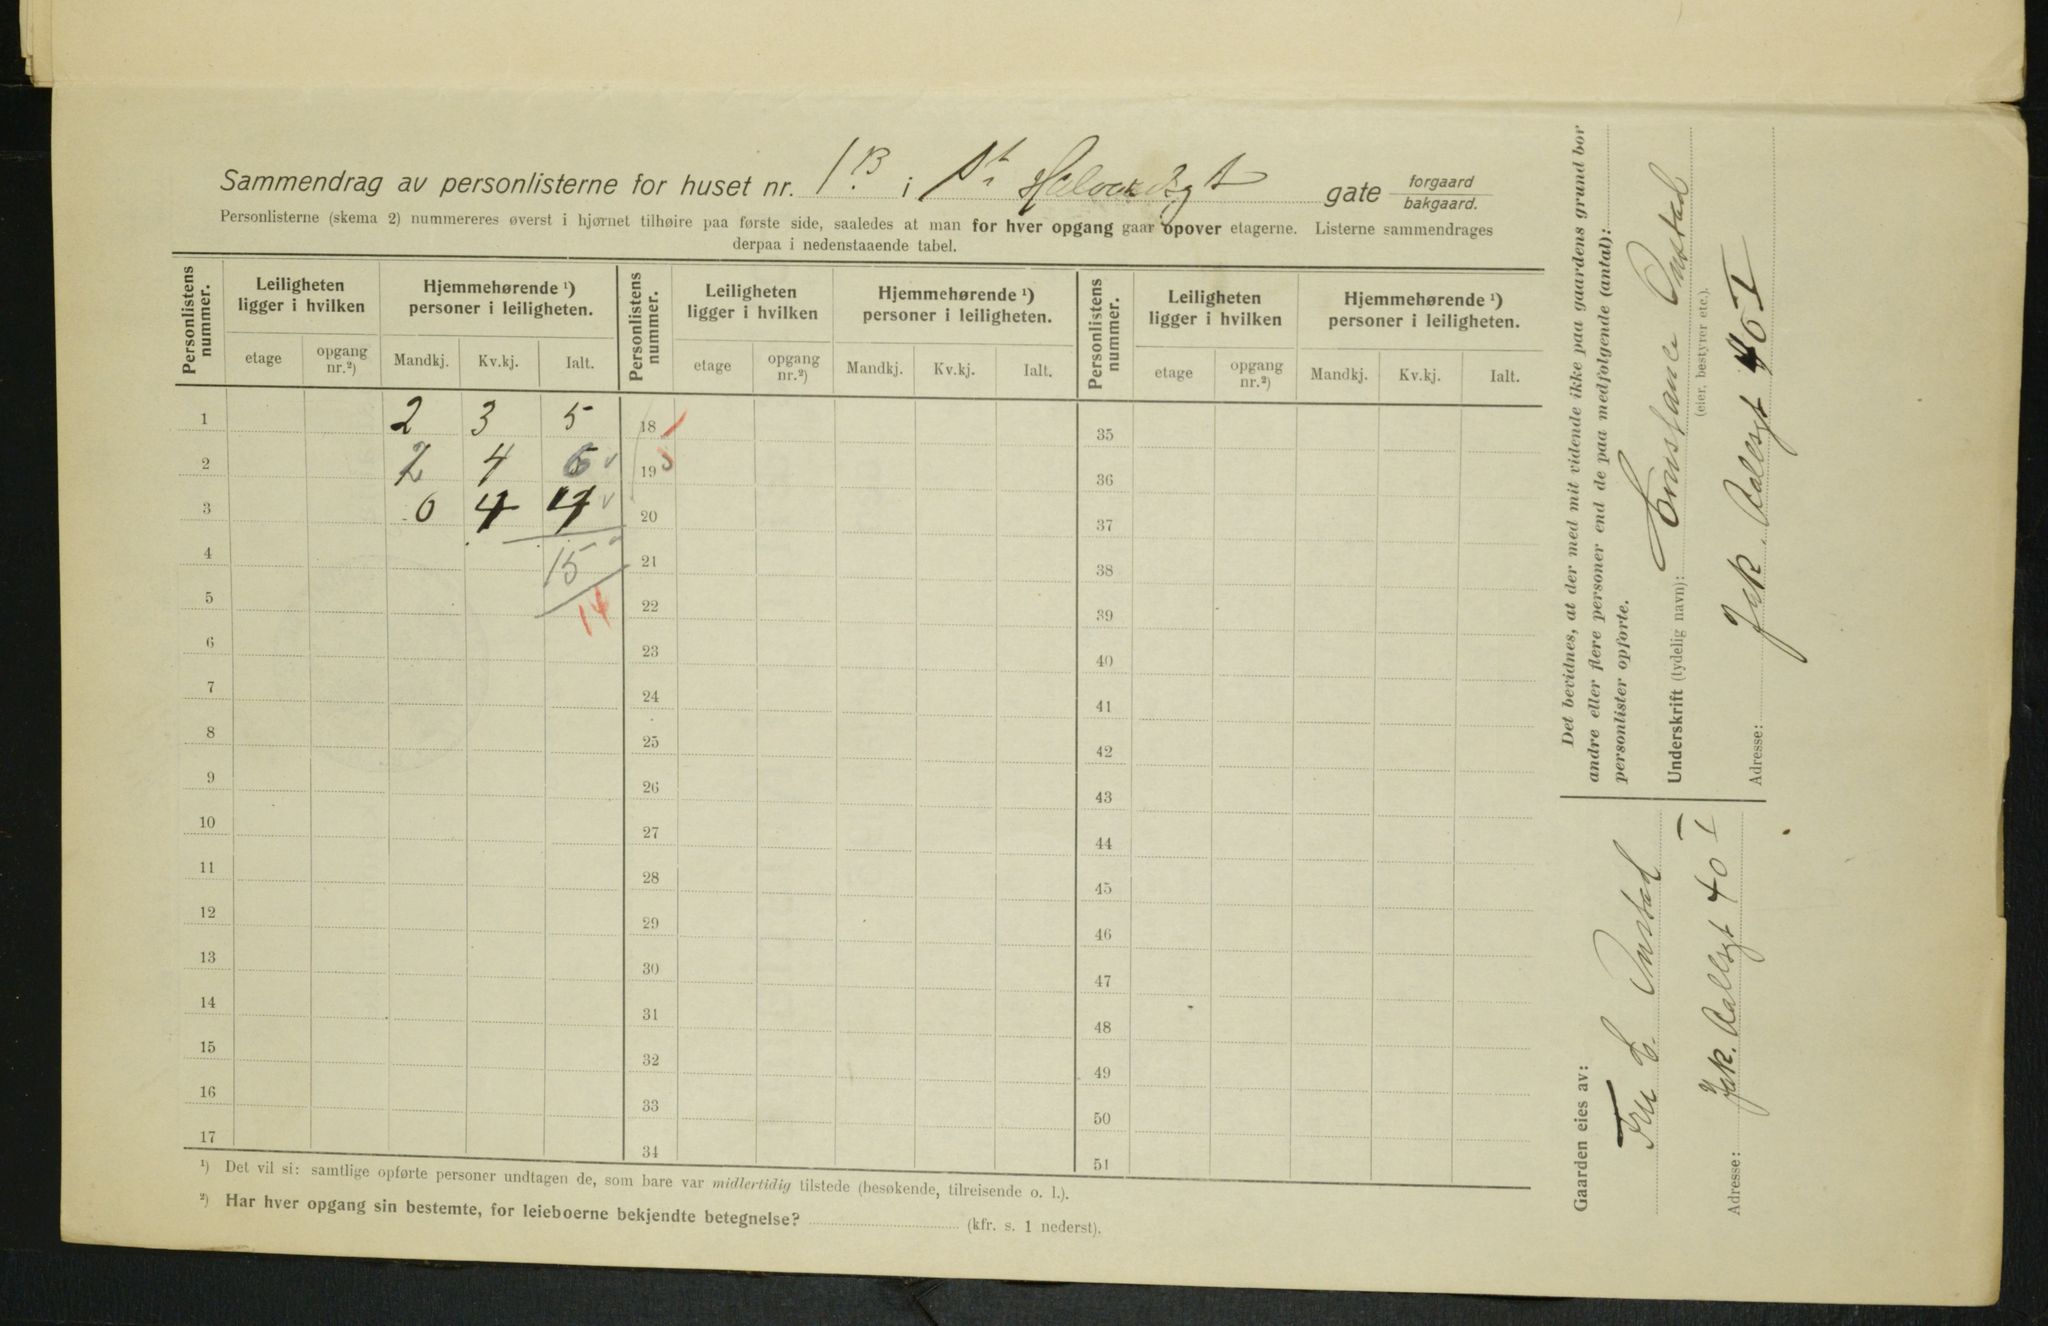 Sammendrag av personlisterne for huset nr. 1B i St Halvardsgt gate forgaard bakgaard.
Personlisterne (skema 2) nummereres øverst i hjørnet tilhøire paa første side, saaledes at man for hver opgang gaar opover etagerne. Listerne sammendrages
derpaa i nedenstaaende tabel.
Personlistens nummer. Leiligheten ligger i hvilken Hjemmehørende ¹) personer i leiligheten. Personlistens nummer. Leiligheten ligger i hvilken Hjemmehørende ¹) personer i leiligheten. Personlistens nummer. Leiligheten ligger i hvilken Hjemmehørende ¹) personer i leiligheten.
etage opgang nr.²) Mandkj. Kv.kj. Ialt. etage opgang nr.²) Mandkj. Kv.kj. Ialt. etage opgang nr.²) Mandkj. Kv.kj. Ialt.
1 2 3 5 18 35
2 2 4 19 36
3 0 4 4 20 37
4 15 21 38
5 14 22 39
6 23 40
7 24 41
8 25 42
9 26 43
10 27 44
11 28 45
12 29 46
13 30 47
14 31 48
15 32 49
16 33 50
17 34 51
¹) Det vil si: samtlige opførte personer undtagen de, som bare var midlertidig tilstede (besøkende, tilreisende o. l.).
²) Har hver opgang sin bestemte, for leieboerne bekjendte betegnelse? (kfr. s. 1 nederst).
Det bevidnes, at der med mit vidende ikke paa gaardens grund bor
andre eller flere personer end de paa medfølgende (antal):
personlister opførte.
Underskrift (tydelig navn): Constance Onstad
(eier, bestyrer etc.).
Adresse: Jak. Aallsgt 40 I
Gaarden eies av:
Fru C. Onstad
Adresse: Jak. Aallsgt 40 I